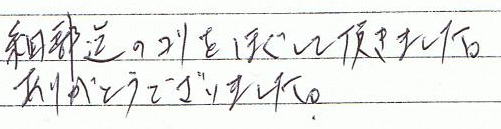 細部迄のコリをほぐして頂きました。
ありがとうございました。